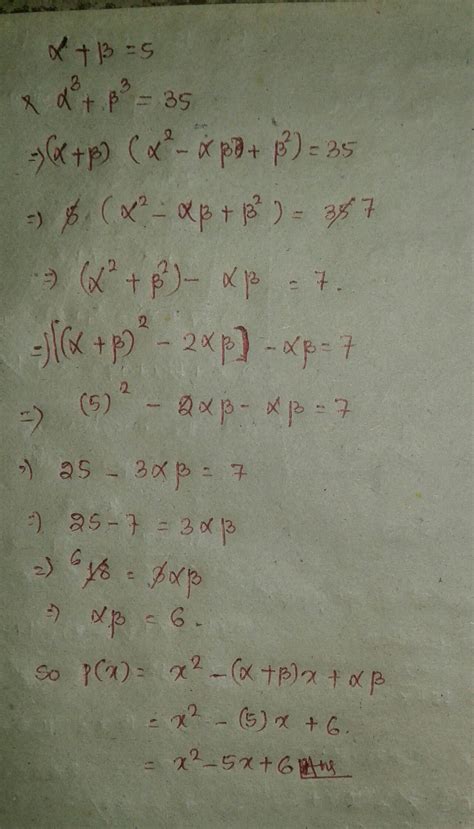 α + β = 5
× α³ + β³ = 35
⇒ (α+β) (α² - αβ + β²) = 35
⇒ 5 (α² - αβ + β²) = 35 7
⇒ (α² + β²) - αβ = 7.
⇒ [(α + β)² - 2αβ] - αβ = 7
⇒ (5)² - 2αβ - αβ = 7
⇒ 25 - 3αβ = 7
⇒ 25 - 7 = 3αβ
⇒ 6 18 = 3αβ
⇒ αβ = 6.
so p(x) = x² - (α + β)x + αβ
= x² - (5)x + 6.
= x² - 5x + 6 Ans